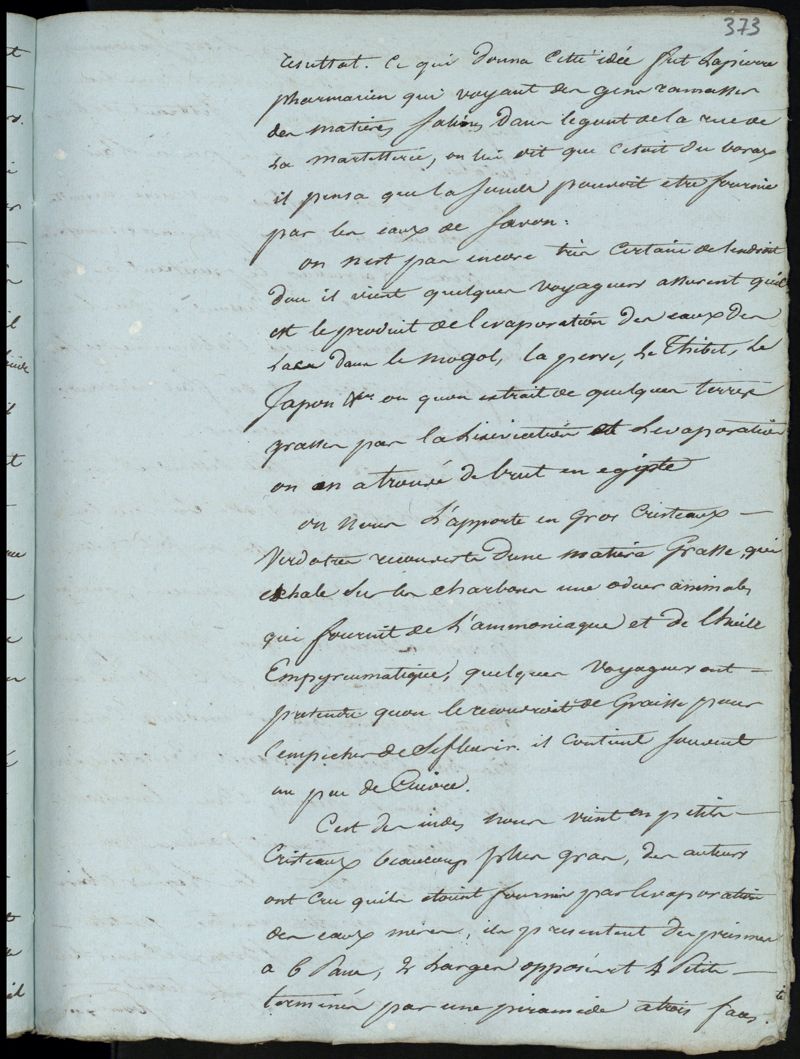 373
resultat. Ce qui donna cette idée fut Lapierre
pharmacien qui voyant des gens ramasser
des matieres salines dans legout de la rue de
la martellerie, on lui dit que c'etoit du borax
il pensa que la soude pouvoit etre fournie
par les eaux de savon.
on n'est pas encore tres certain de lendroit
dou il vient quelques voyageurs assurent quil
est le produit de levaporation des eaux des
lacs dans le mogol, la perse, le Thibet, le
Japon &c ou quon extrait de quelques terres
grasses par la lixiviation et levaporation
on en a trouvé de brut en egipte
on nous l'apporte en gros cristeaux
verdatres recouverts dune matiere grasse, qui
exhale sur les charbons une odeur animale
qui fournit de l'ammoniaque et de lhuile
Empyreumatique, quelques voyageurs ont
pretendu quon le recouvroit de graisse pour
lempecher de sefleurir. il contient souvent
un peu de cuivre.
C'est des indes nous vient en petits
cristeaux beaucoup plus gras, des auteurs
ont cru quils etoient fournis par levaporation
des eaux meres, ils presentent des prismes
a 6 Pans, 2 larges opposés et 4 Petits
terminés par une piramide a trois faces.